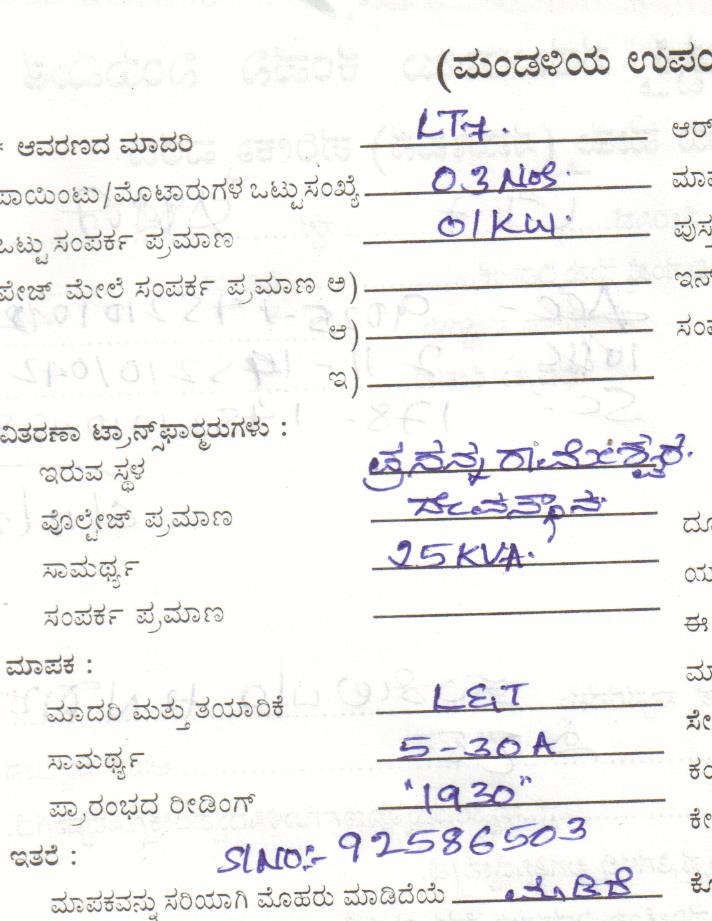 (ಮಂಡಳಿಯ ಉಪ
* ಆವರಣದ ಮಾದರಿ LT7. ಆರ್
ಪಾಯಿಂಟು/ಮೊಟಾರುಗಳ ಒಟ್ಟುಸಂಖ್ಯೆ 03 Nos. ಮಾಪ
ಒಟ್ಟು ಸಂಪರ್ಕ ಪ್ರಮಾಣ 01KW. ಪುಸ್ತ
ಪೇಜ್ ಮೇಲೆ ಸಂಪರ್ಕ ಪ್ರಮಾಣ ಅ) ಇನ್
ಆ) ಸಂಪ
ಇ)
ವಿತರಣಾ ಟ್ರಾನ್ಸ್‌ಫಾರ್‍ಮರುಗಳು :
ಇರುವ ಸ್ಥಳ ಪ್ರಸನ್ನ ರಾಮೇಶ್ವರ
ವೊಲ್ಟೇಜ್ ಪ್ರಮಾಣ ದೇವಸ್ಥಾನ ದೂ
ಸಾಮರ್ಥ್ಯ 25KVA. ಯ
ಸಂಪರ್ಕ ಪ್ರಮಾಣ ಈ
ಮಾಪಕ : ಮಾ
ಮಾದರಿ ಮತ್ತು ತಯಾರಿಕೆ L&T ಸೇ
ಸಾಮರ್ಥ್ಯ 5-30A ಕಂ
ಪ್ರಾರಂಭದ ರೀಡಿಂಗ್ "1930" ಕೇ
ಇತರೆ : SlNO:- 92586503
ಮಾಪಕವನ್ನು ಸರಿಯಾಗಿ ಮೊಹರು ಮಾಡಿದೆಯೆ ಮಾಡಿದೆ ಕೊ